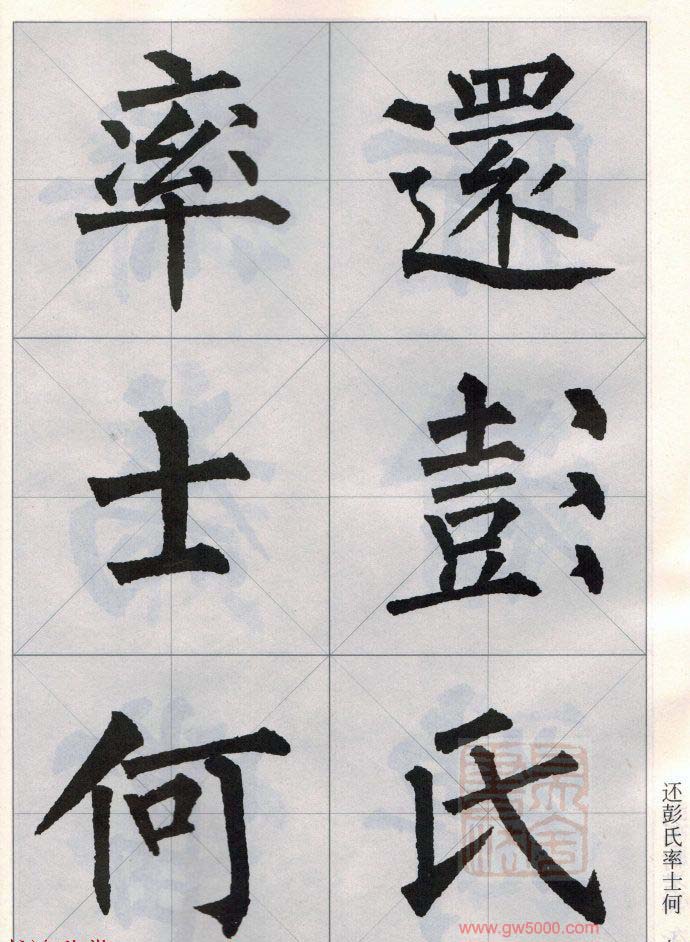 還彭氏
率士何
还彭氏率士何
www.gw5000.com